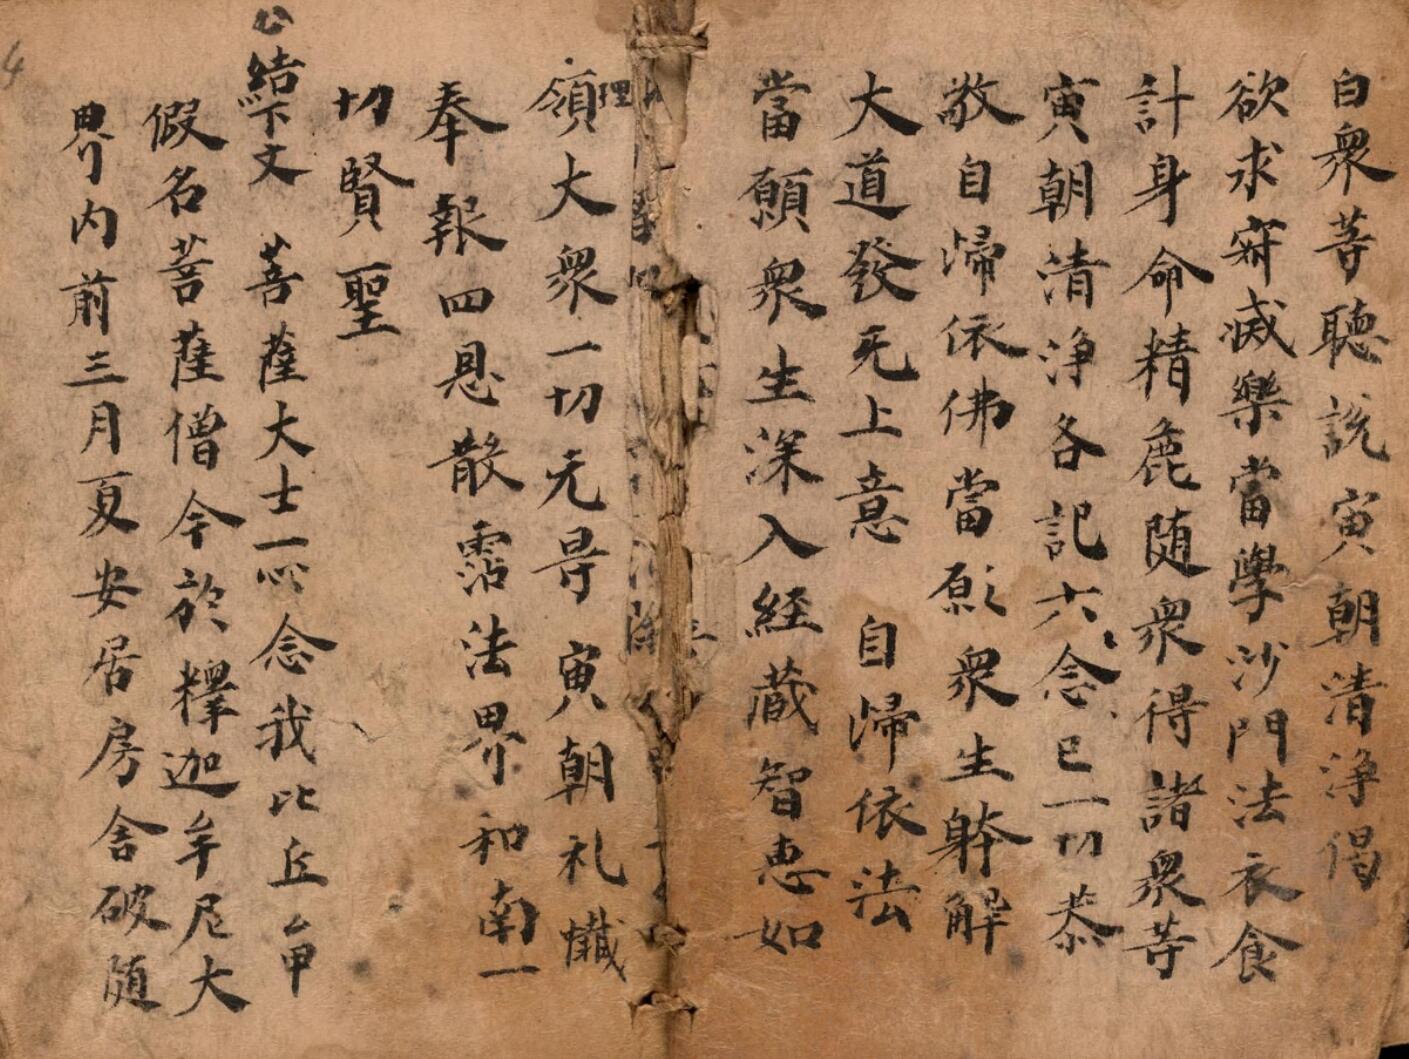 白衆等聽說寅朝清淨偈
欲求寂滅樂當學沙門法衣食
計身命精麁随衆得諸衆等
寅朝清淨各記六念已一切恭
敬自㷌依佛當願衆生躰解
大道發无上意 自㷌依法
當願衆生深入経蔵智恵如
理
領大衆一切无㝵寅朝礼懴
奉報四恩散霑法界和南一
切賢聖
結下文 菩薩大士一心念我比丘ム甲
假名菩薩僧今於釋迦牟尼大
界内前三月夏安居房舍破随
4